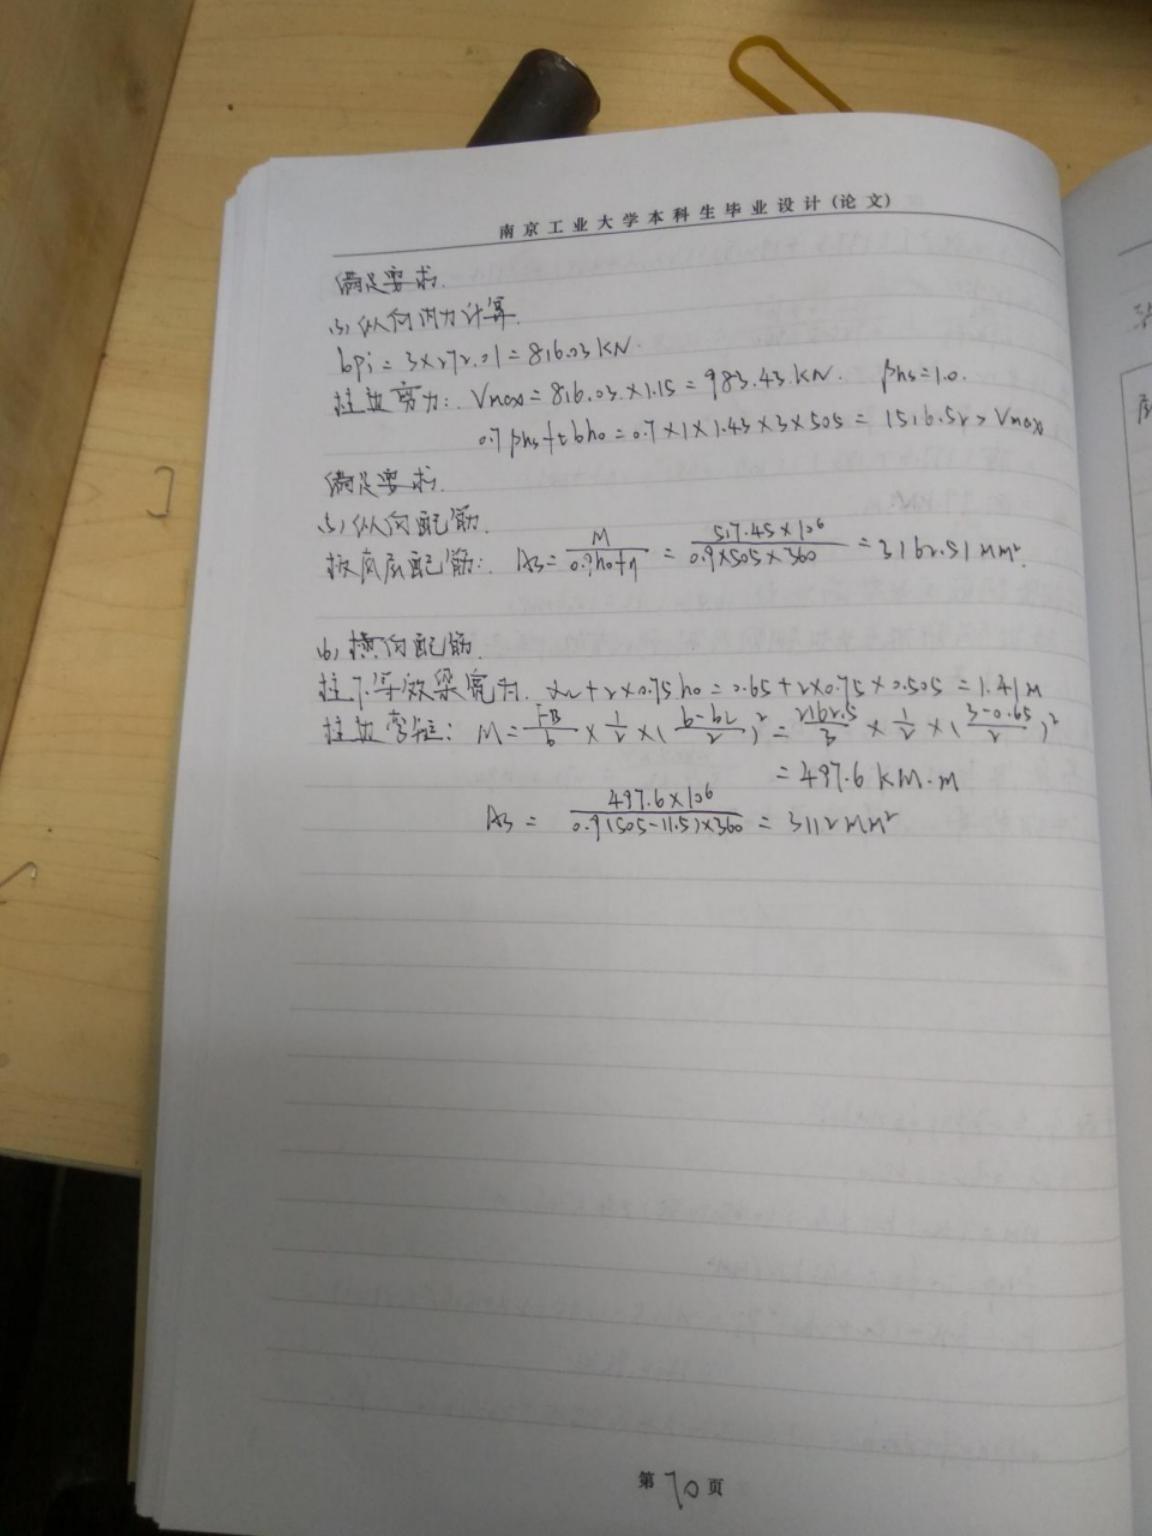 南京工业大学本科生毕业设计(论文)
满足要求.
(3)纵向内力计算.
bpi=3×272.01=816.03KN.
柱边剪力: Vmax=816.03×1.15=983.43KN. βhs=1.0.
0.7βhsftbh0=0.7×1×1.43×3×505=1516.52>Vmax
满足要求.
(5)纵向配筋.
板底层配筋: As=M/0.9h0fy=517.45×10⁶/0.9×505×360=3162.51mm².
(6)横向配筋.
柱下等效梁宽为. +2×0.75h0=0.65+2×0.75×0.505=1.41m
柱边弯矩: M=FB/b×1/2×(b-b2/2)²=2162.5/3×1/2×(3-0.65/2)²
=497.6KM·m
As=497.6×10⁶/0.9(505-11.5)×360=3112mm²
第70页